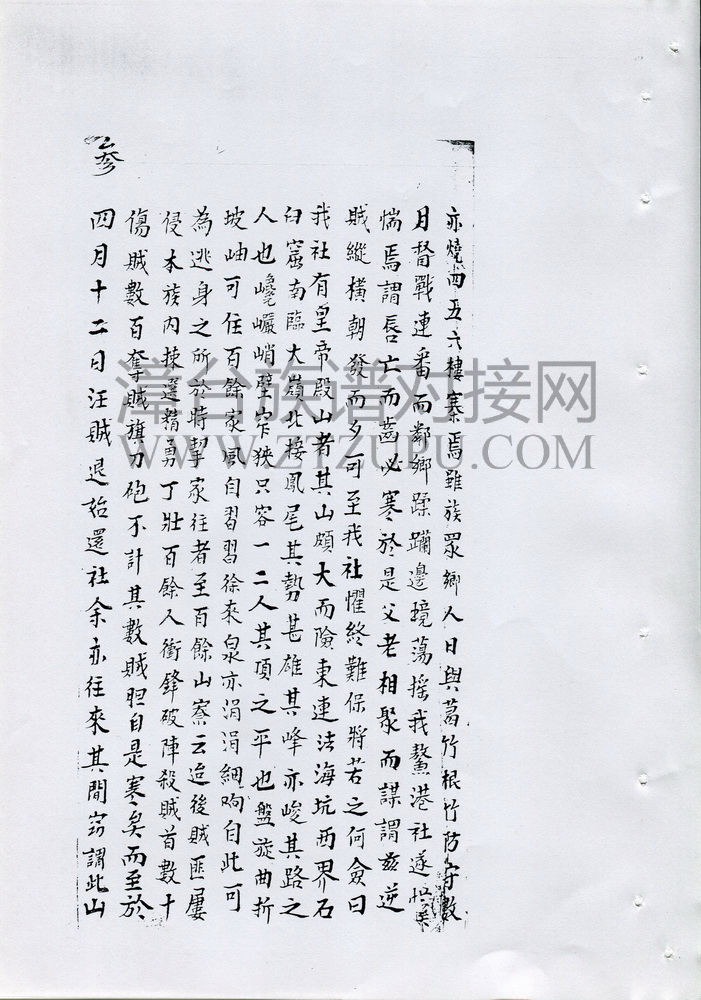 亦燒西五六樓寨焉雖族眾鄉人日與葛竹根竹防守數
月督戰連番而鄰鄉蹂躪邊境蕩搖我鰲港社遂
惴焉謂唇亡而齒必寒於是父老相聚而謀謂茲逆
賊縱橫朝發而夕可至我社懼終難保將若之何僉曰
我社有皇帝殿山者其山頗大而險東連法海坑西界石
臼窟南臨大嶺北接鳳尾其勢甚雄其峰亦峻其路之
人也巉巗峭壁窄狹只容一二人其項之平也盤旋曲折
坡岫可住百餘家風自習習徐來泉亦涓涓細响自此可
為逃身之所於時挈家往者至百餘山寮云迨後賊匪屢
侵本族內揀選精勇丁壯百餘人衝鋒破陣殺賊首數十
傷賊數百奪賊旗刀砲不計其數賊胆自是寒矣而至於
四月十二日汪賊退始還社余亦往來其間窃謂此山
參
漳台族谱对接网
WWW.ZTZUPU.COM